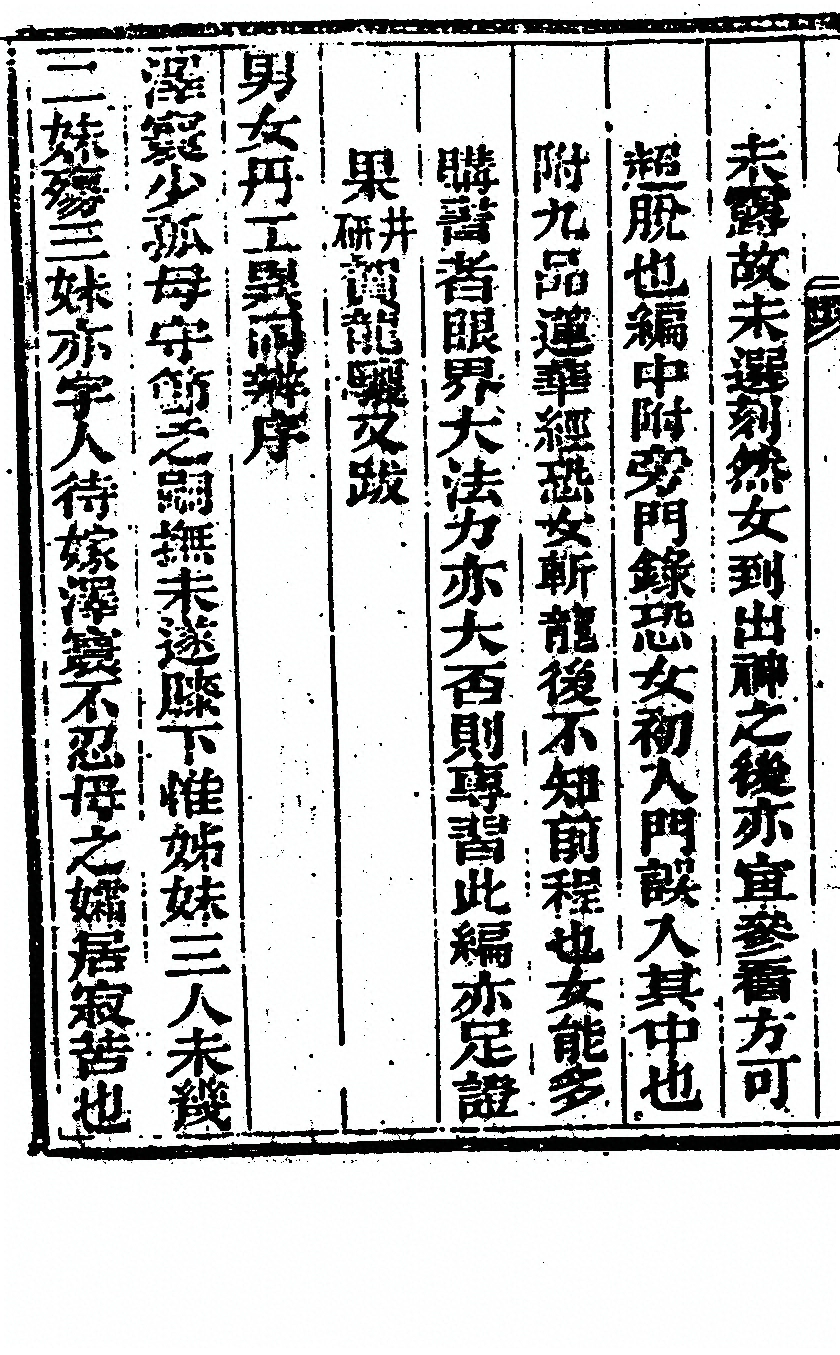 未露故未選刻然女到出神之後亦宜參看方可
超脫也編中附旁門錄恐女初入門誤入其中也
附九品蓮華經恐女斬龍後不知前程也女能多
購書者眼界大法力亦大否則專習此編亦足證
果井研賀龍驤又跋
男女丹工異同辨序
澤寰少孤母守節乏嗣撫未遂膝下惟姊妹三人未幾
二妹殤三妹亦字人待嫁澤寰不忍母之孀居寂苦也